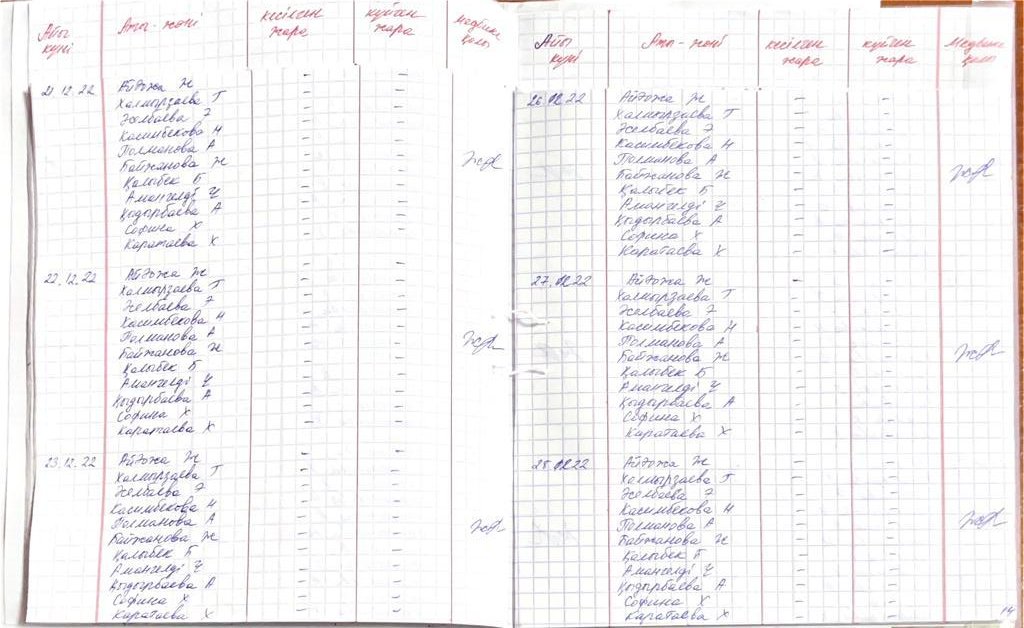 Айы күні Аты-жөні кесілген жара күйген жара Медбике қолы
21.12.22 Айдожа Ж – –
Халмырзаева Т – –
Желбаева Э – –
Касимбекова Н – –
Полманова А – –
Байжанова Ж – –
Қалыбек Б – –
Амангелді Ч – –
Қыдырбаева А – –
Софина Х – –
Каратаева Х – –
22.12.22 Айдожа Ж – –
Халмырзаева Т – –
Желбаева Э – –
Касимбекова Н – –
Полманова А – –
Байжанова Ж – –
Қалыбек Б – –
Амангелді Ч – –
Қыдырбаева А – –
Софина Х – –
Каратаева Х – –
23.12.22 Айдожа Ж – –
Халмырзаева Т – –
Желбаева Э – –
Касимбекова Н – –
Полманова А – –
Байжанова Ж – –
Қалыбек Б – –
Амангелді Ч – –
Қыдырбаева А – –
Софина Х – –
Каратаева Х – –
Айы күні Аты-жөні кесілген жара күйген жара Медбике қолы
26.12.22 Айдожа Ж – –
Халмырзаева Т – –
Желбаева Э – –
Касимбекова Н – –
Полманова А – –
Байжанова Ж – –
Қалыбек Б – –
Амангелді Ч – –
Қыдырбаева А – –
Софина Х – –
Каратаева Х – –
27.12.22 Айдожа Ж – –
Халмырзаева Т – –
Желбаева Э – –
Касимбекова Н – –
Полманова А – –
Байжанова Ж – –
Қалыбек Б – –
Амангелді Ч – –
Қыдырбаева А – –
Софина Х – –
Каратаева Х – –
28.12.22 Айдожа Ж – –
Халмырзаева Т – –
Желбаева Э – –
Касимбекова Н – –
Полманова А – –
Байжанова Ж – –
Қалыбек Б – –
Амангелді Ч – –
Қыдырбаева А – –
Софина Х – –
Каратаева Х – –
14